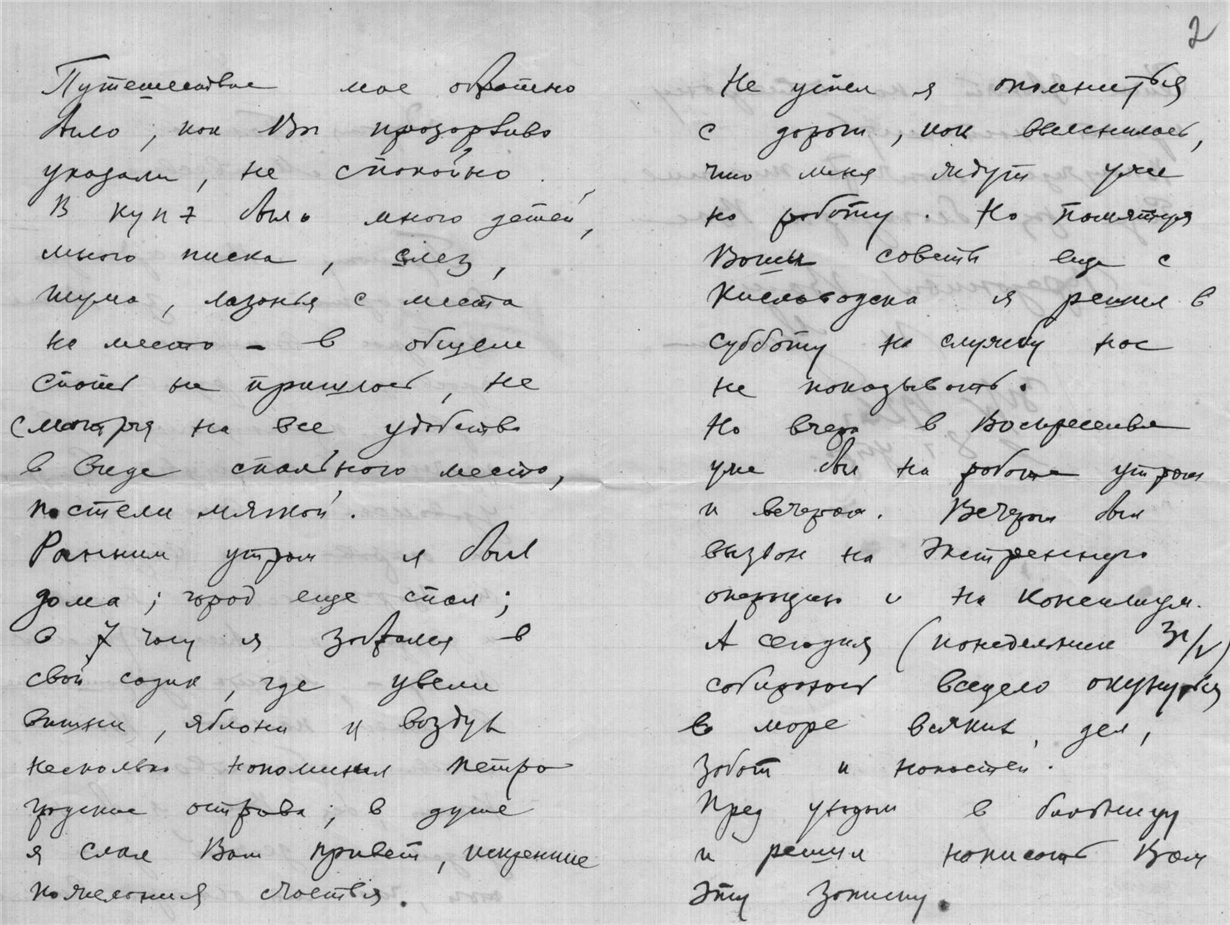 2
Путешествие мое обратно
было, как Вы прозорливо
указали, не спокойно.
В купэ было много детей,
много писка, слез,
шума, лазанья с места
на место – в общем
спать не пришлось, не
смотря на все удобства
в виде спального места,
постели мягкой.
Ранним утром я был
дома; город еще спал;
в 7 часу я забрался в
свой садик, где цвели
вишни, яблони и воздух
несколько напоминал Петро
градские острова; в душе
я слал Вам привет, искренние
пожелания счастья.
Не успел я опомниться
с дороги, как выяснилось,
что меня ждут уже
на работу. Но памятуя
Ваши советы еще с
Кисловодска я решил в
субботу на службу нос
не показывать.
Но вчера в Воскресенье
уже был на работе утром
и вечером. Вечером был
вызван на экстренную
операцию и на консилиум.
А сегодня (понедельник 31/V)
собираюсь всецело окунуться
в море всяких дел,
забот и новостей.
Пред уходом в больницу
и решил написать Вам
эту записку.